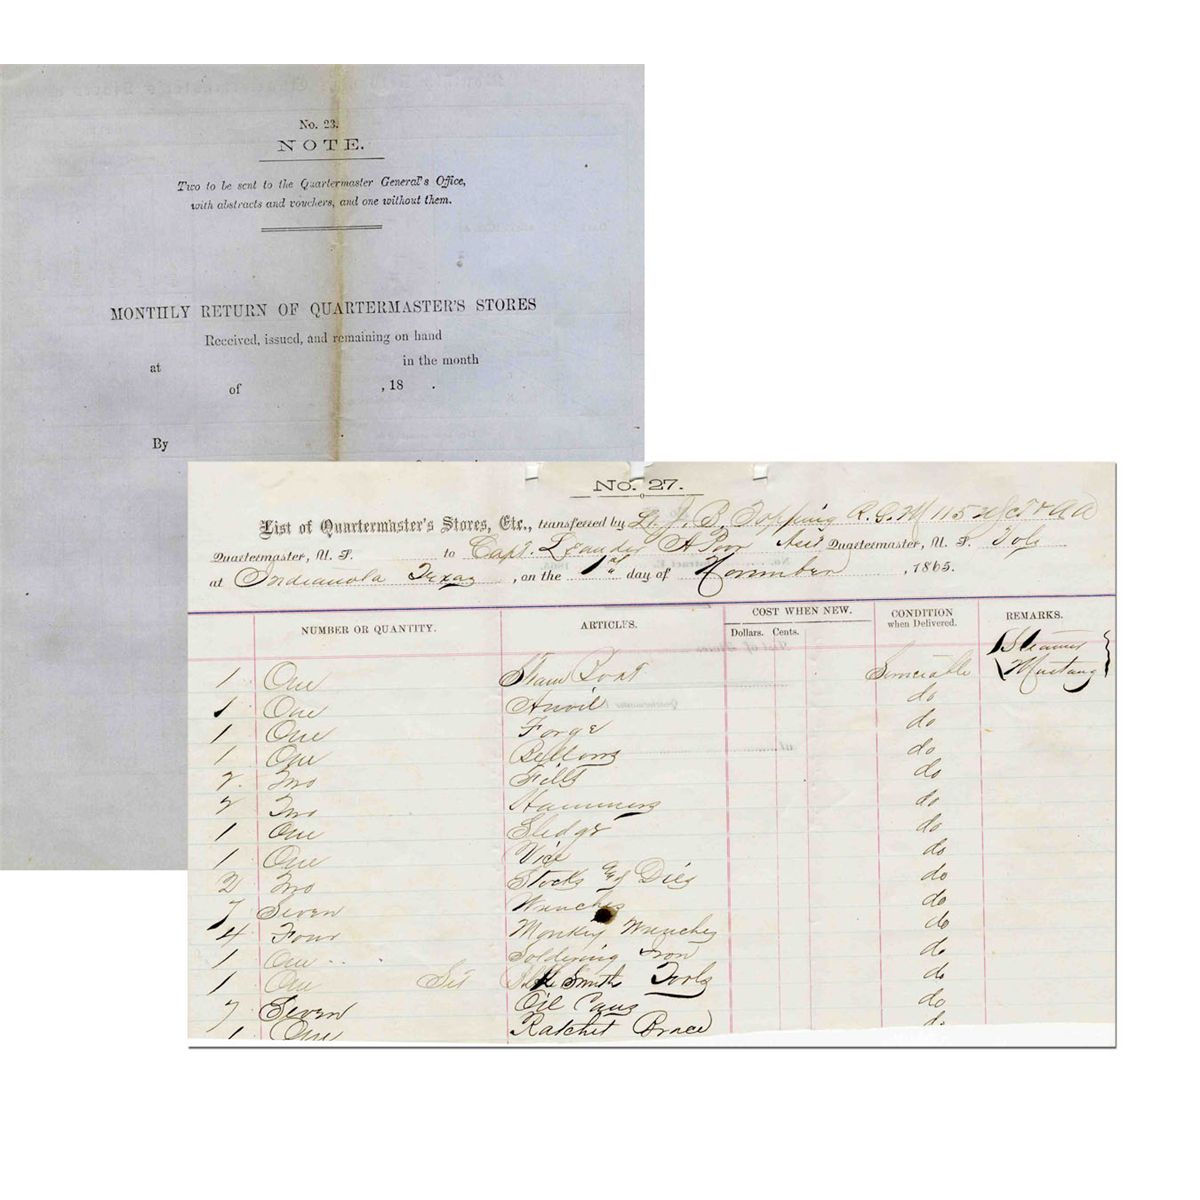 No. 23.
NOTE.
Two to be sent to the Quartermaster General's Office,
with abstracts and vouchers, and one without them.
MONTHLY RETURN OF QUARTERMASTER'S STORES
Received, issued, and remaining on hand
at in the month
of , 18 .
By
No. 27.
List of Quartermaster's Stores, Etc., transferred by Lt. J. B. Topping R. Q. M 115
Quartermaster, U. S. to Capt. Leander A Poor Asst Quartermaster, U. S. Vols
at Indianola Texas, on the 1st day of November, 1865.
NUMBER OR QUANTITY. ARTICLES. COST WHEN NEW. Dollars. Cents. CONDITION when Delivered. REMARKS.
1 One Steam Boat Serviceable Steamer Mustang
1 One Anvil do
1 One Forge do
1 One Bellows do
2 Two do
2 Two Hammers do
1 One Sledge do
1 One Vice do
2 Two Stocks & Dies do
7 Seven Wrenches do
4 Four Monkey Wrenches do
1 One Soldering Iron do
1 One Set Smiths Tools do
7 Seven Oil Cans do
1 One Ratchet Brace do